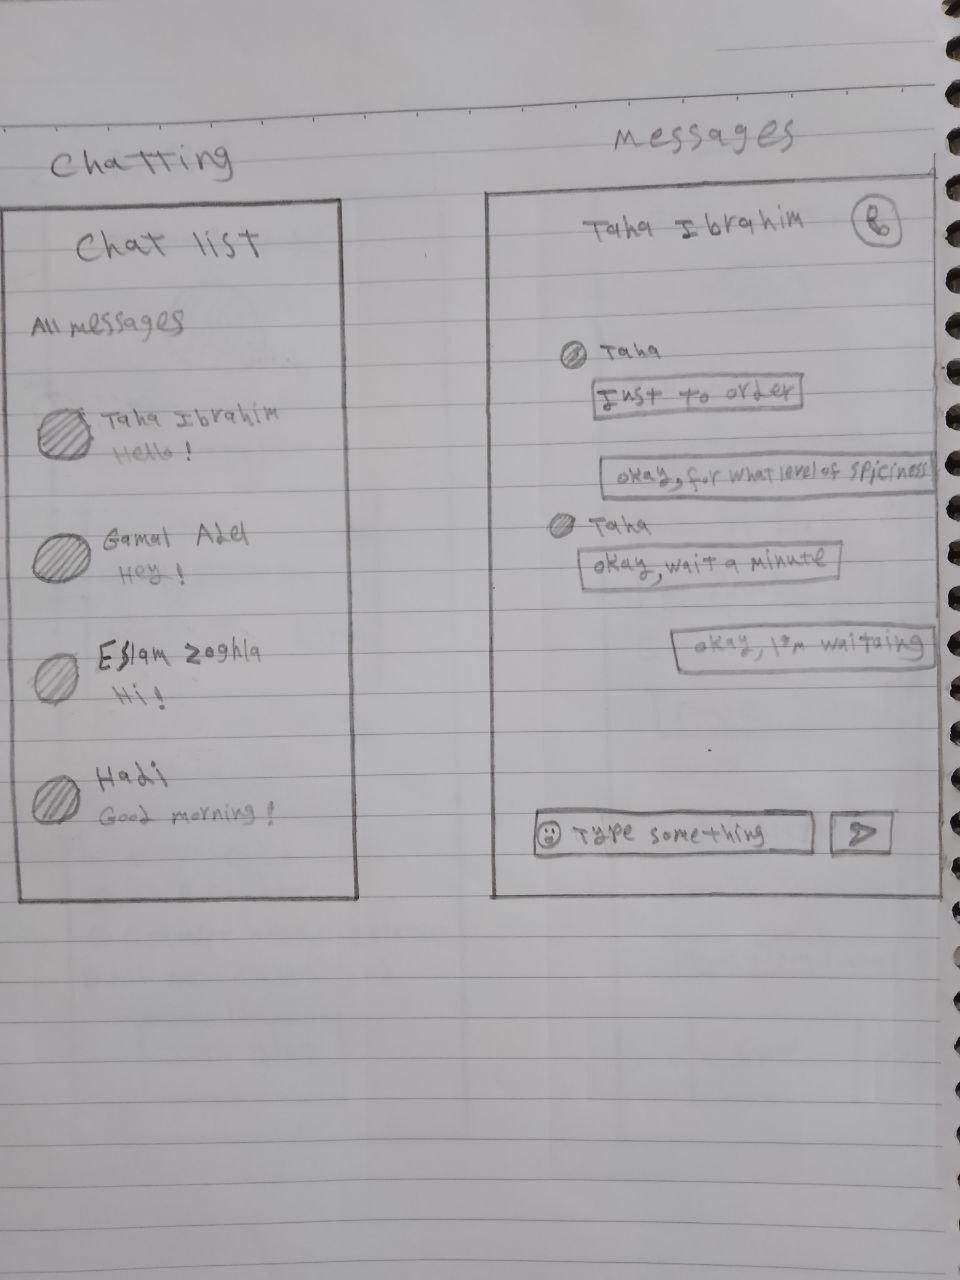 Chatting
Chat list
All messages
Taha Ibrahim
Hello !
Gamal Adel
Hey !
Eslam Zoghla
Hi !
Hadi
Good morning !
Messages
Taha Ibrahim
Taha
Just to order
okay, for what level of spiciness
Taha
okay, wait a minute
okay, I'm waitaing
Type something